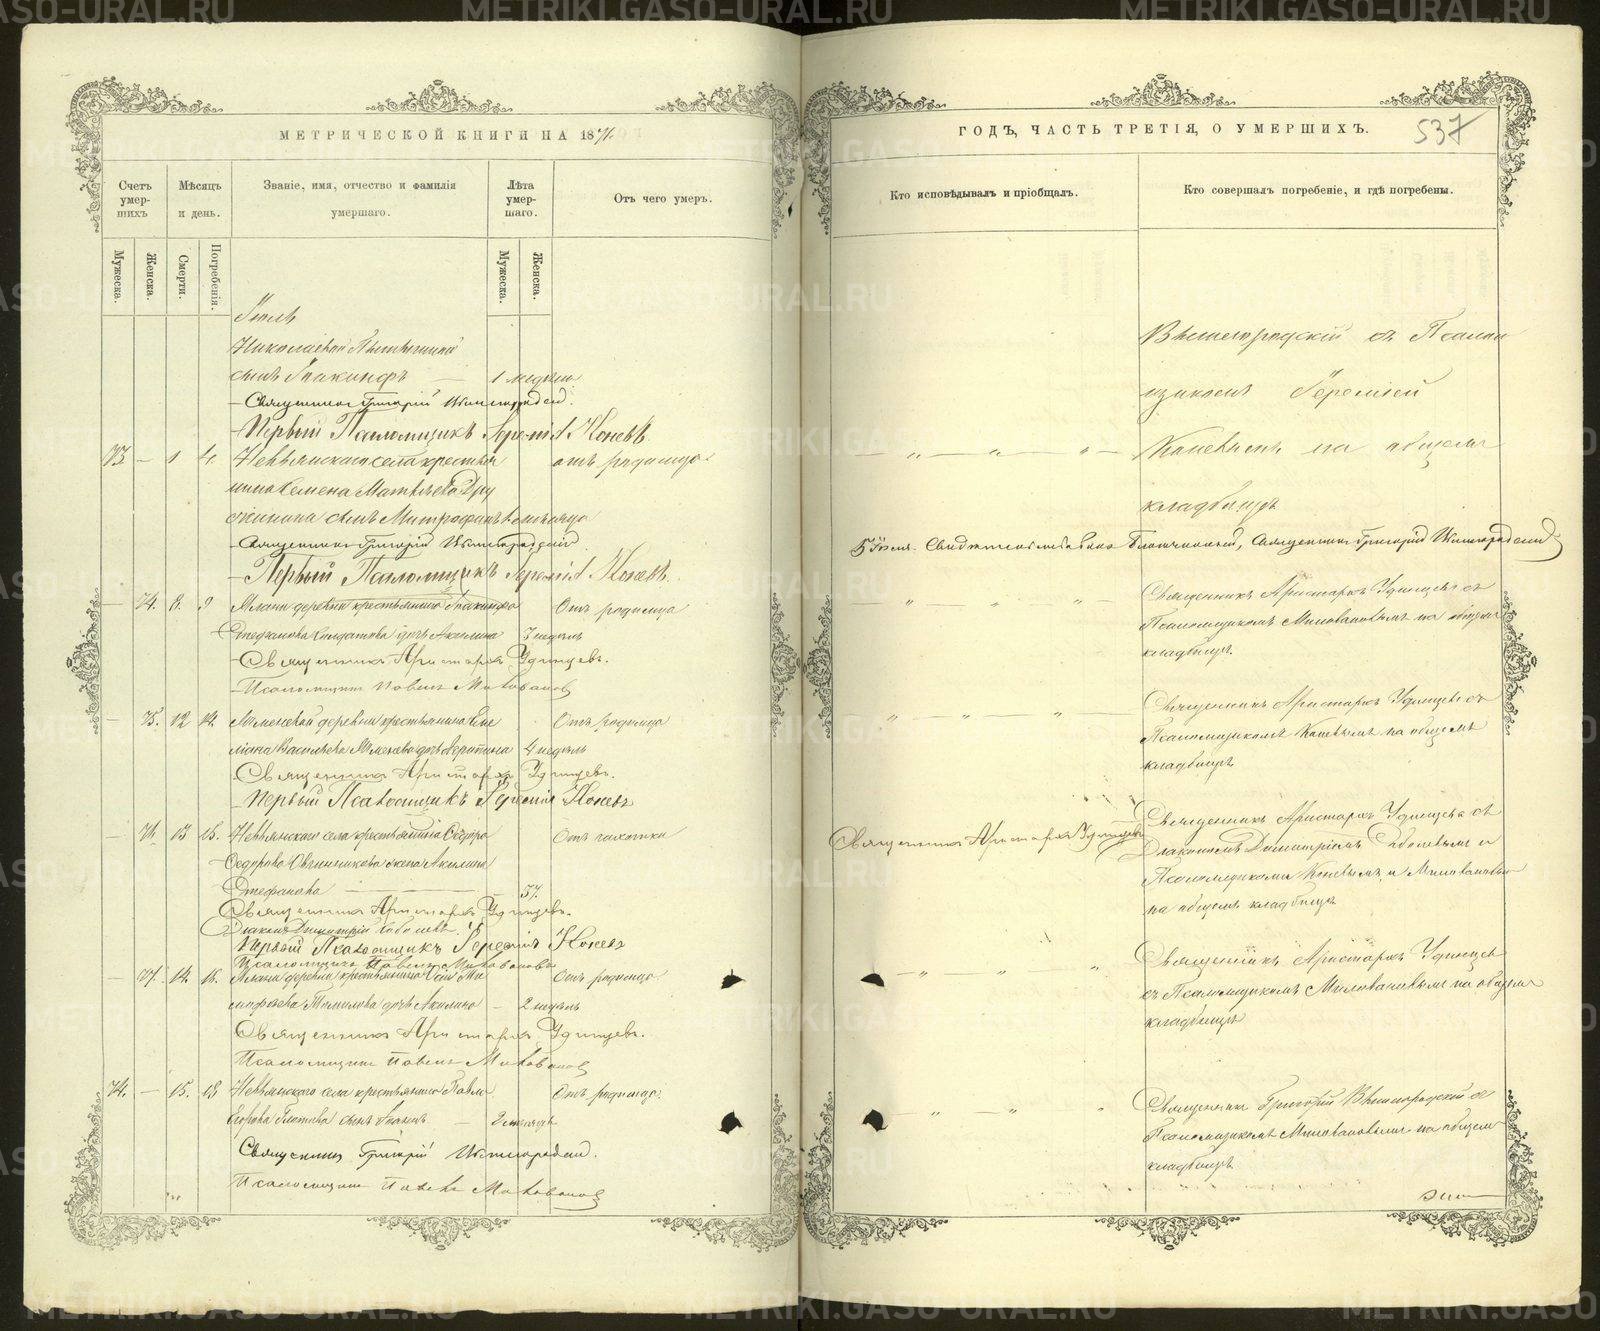 МЕТРИЧЕСКОЙ КНИГИ НА 1871.
Счетъ умер- шихъ
Мѣсяцъ и день.
Званіе, имя, отчество и фамилія умершаго.
Лѣта умер- шаго.
Отъ чего умеръ.
Мужеска.
Женска.
Смерти.
Погребенія.
Мужеска.
Женска.
Іюль
Николаевой
сынъ Іоакинфъ — 1 недѣли
Священникъ Григорій Вышегородскій.
Первый Псаломщикъ Іеремія Коневъ
73. — 1 4. Невьянскаго села крестья отъ родимца
нина Семена Матвѣева Дру
жинина сынъ Митрофанъ
Священникъ Григорій Вышегородскій
Первый Псаломщикъ Іеремія Коневъ.
— 74. 8. 9 деревни крестьянина Іоакинфа Отъ родимца
Стефанова дочь Акилина 3 недѣль
Священникъ Аристархъ Удинцевъ.
Псаломщикъ Павелъ Миловановъ
— 75. 12 14. деревни крестьянина Еме Отъ родимца
ліана Васильева дочь 4 недѣль
Священникъ Аристархъ Удинцевъ.
Первый Псаломщикъ Іеремія Коневъ
— 76. 13 15. Невьянскаго села крестьянина Ѳедора Отъ чахотки
Ѳедорова Овчинникова жена Акилина
Стефанова — 57.
Священникъ Аристархъ Удинцевъ.
Діаконъ Димитрій Соболевъ.
Первый Псаломщикъ Іеремія Коневъ
Псаломщикъ Павелъ Миловановъ
— 77. 14. 16. деревни крестьянина Отъ родимца
дочь Акилина — 2 недѣль
Священникъ Аристархъ Удинцевъ.
Псаломщикъ Павелъ Миловановъ
74. — 15. 18 Невьянскаго села крестьянина Павла Отъ родимца.
Егорова сынъ — 2 мѣсяцъ
Священникъ Григорій Вышегородскій.
Псаломщикъ Павелъ Миловановъ
ГОДЪ, ЧАСТЬ ТРЕТІЯ, О УМЕРШИХЪ.
537
Кто исповѣдывалъ и пріобщалъ.
Кто совершалъ погребеніе, и гдѣ погребены.
Вышегородскій съ Псалом
щикомъ Іереміей
Коневымъ на общемъ
кладбищѣ
5 Іюля. Свидѣтельствовалъ Благочинный, Священникъ Григорій Вышегородскій
Священникъ Аристархъ Удинцевъ съ
Псаломщикомъ Миловановымъ на общемъ
кладбищѣ.
Священникъ Аристархъ Удинцевъ съ
Псаломщикомъ Коневымъ на общемъ
кладбищѣ
Священникъ Аристархъ Удинцевъ
Священникъ Аристархъ Удинцевъ съ
Діакономъ Димитріемъ Соболевымъ и
Псаломщиками Коневымъ и Миловановымъ
на общемъ кладбищѣ
Священникъ Аристархъ Удинцевъ
съ Псаломщикомъ Миловановымъ на общемъ
кладбищѣ
Священникъ Григорій Вышегородскій съ
Псаломщикомъ Миловановымъ на общемъ
кладбищѣ
METRIKI.GASO-URAL.RU